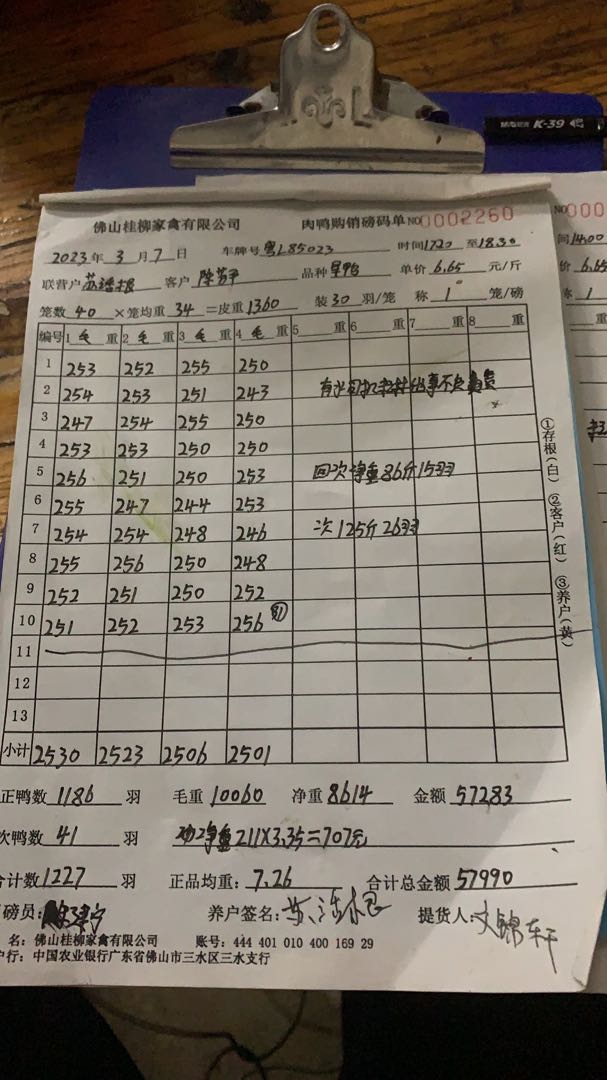 K-39
佛山桂柳家禽有限公司 肉鸭购销磅码单 NO 0002260
2023 年 3 月 7 日 车牌号 粤L85023 时间 1720 至 18.30
联营户 客户 陈芳平 品种 旱鸭 单价 6.65 元/斤
笼数 40 ×笼均重 34 =皮重 1360 装 30 羽/笼 称 1 笼/磅
编号 1 毛 重 2 毛 重 3 毛 重 4 毛 重 5 重 6 重 7 重 8 重
1 253 252 255 250
2 254 253 251 243
3 247 254 255 250
4 253 253 250 250
5 256 251 250 253 回次净重86斤15羽
6 255 247 244 253
7 254 254 248 246 次125斤26羽
8 255 256 250 248
9 252 251 250 252
10 251 252 253 256
11
12
13
小计 2530 2523 2506 2501
①存根(白) ②客户(红) ③养户(黄)
正鸭数 1186 羽 毛重 10060 净重 8614 金额 57283
次鸭数 41 羽 次净重211×3.35=707元
合计数 1227 羽 正品均重: 7.26 合计总金额 57990
磅员: 养户签名: 提货人: 文锦轩
名: 佛山桂柳家禽有限公司 账号: 444 401 010 400 169 29
户行: 中国农业银行广东省佛山市三水区三水支行
NO 000
间 14.00
价 6.65
称 1